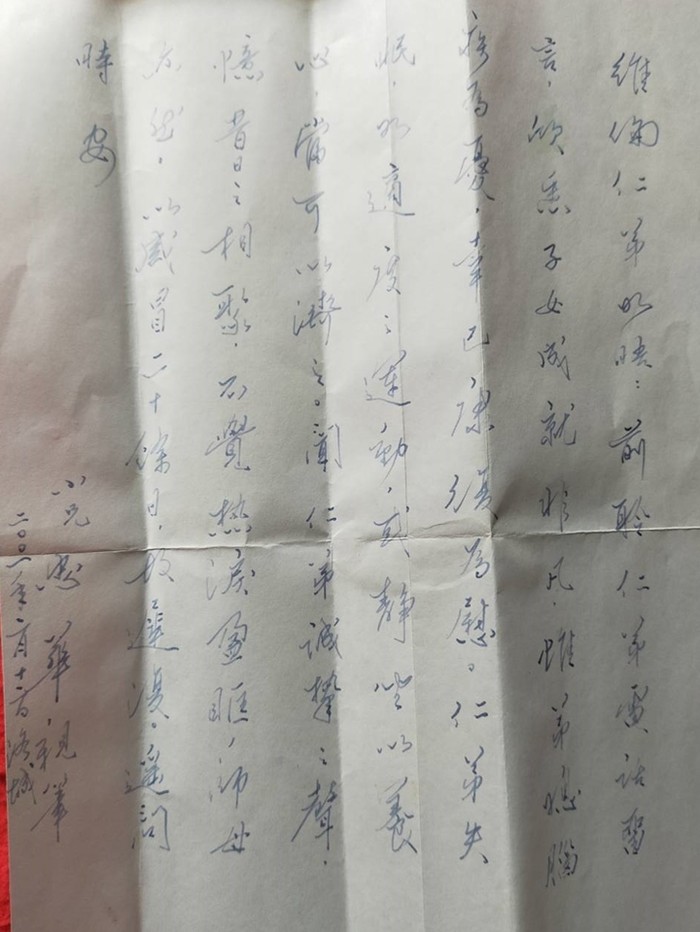 維倫仁弟如晤：前聆仁弟電話留
言，欣悉子女成就非凡，惟弟媳腦
疾為憂，幸已康復為慰。仁弟失
眠，如適度之運動，或靜坐以養
心，當可以濟之。聞仁弟誠摯之聲，
憶昔日之相聚，不覺熱淚盈眶，師母
亦然。以感冒二十餘日，故遲復。遙問
時安
華親筆
二〇〇一年二月十二日洛城